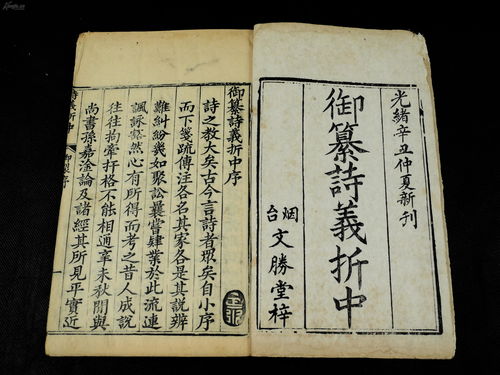 光緒辛丑仲夏新刊
御纂詩義折中
烟台文勝堂梓
御纂詩義折中序
詩之教大矣古今言詩者眾矣自小序
而下箋疏傳注各名其家各是其說辨
難糾紛幾如聚訟曩嘗肄業於此流連
諷詠豁然心有所得而考之昔人成說
往往拘牽扞格不能相通辛未秋閒與
尚書孫嘉淦論及諸經其所見平實近
詩義折中 序